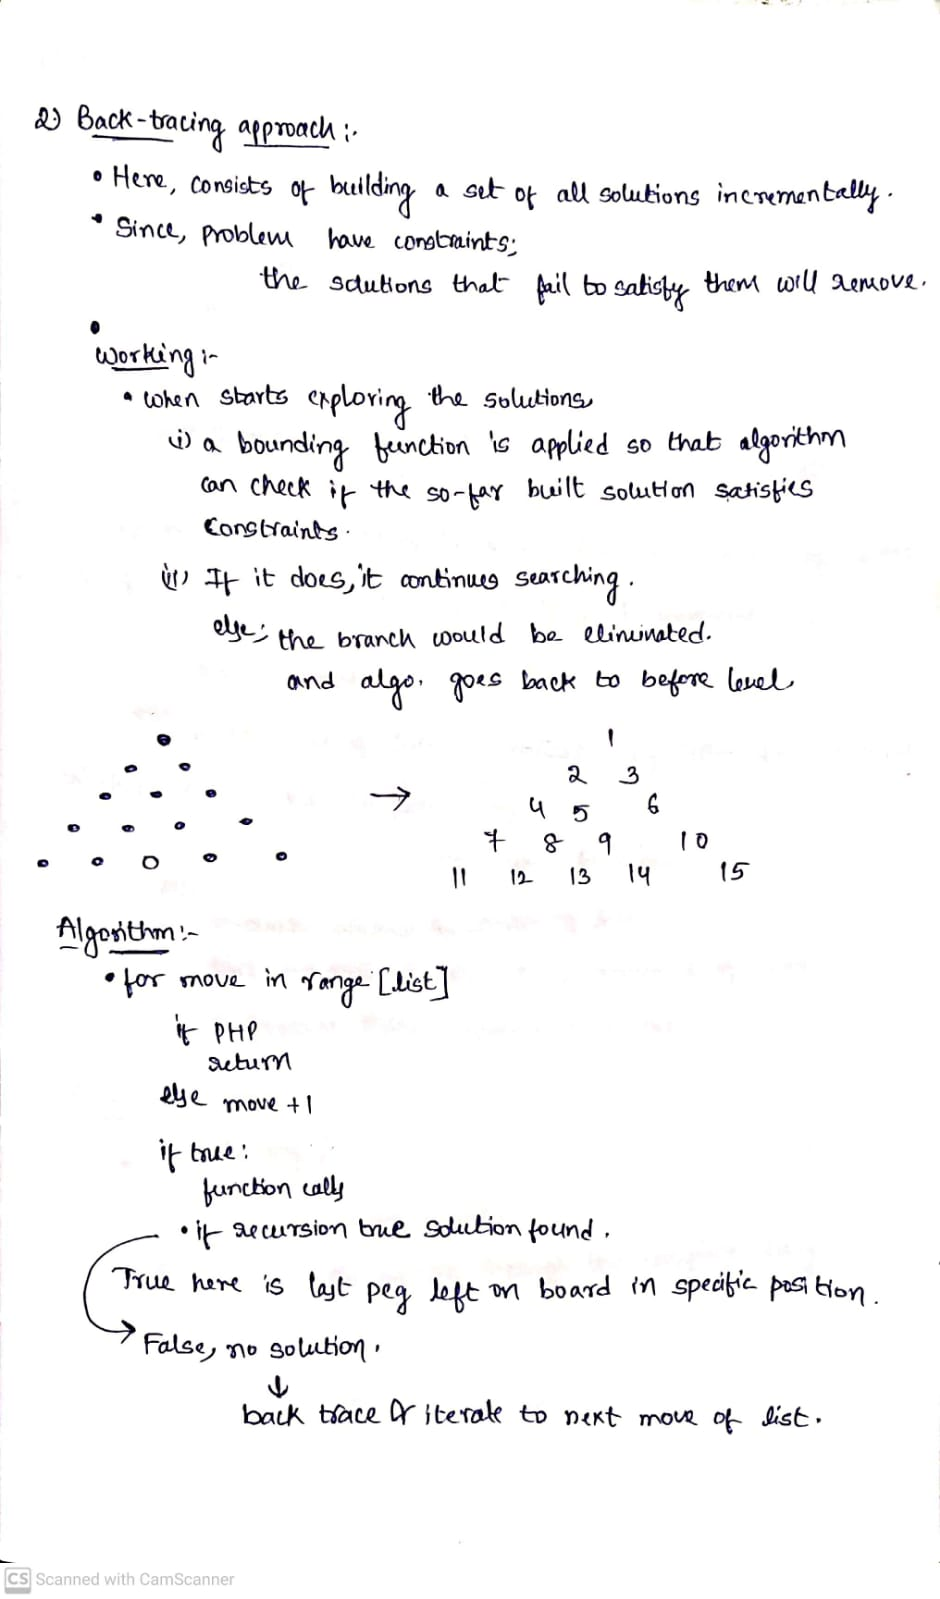 2) Back-tracing approach :-
• Here, consists of building a set of all solutions incrementally.
• Since, problem have constraints;
the solutions that fail to satisfy them will remove.
•
Working :-
• when starts exploring the solutions
i) a bounding function is applied so that algorithm
can check if the so-far built solution satisfies
Constraints.
ii) If it does, it continues searching.
else; the branch would be eliminated.
and algo. goes back to before level
→
1
2 3
4 5 6
7 8 9 10
11 12 13 14 15
Algorithm :-
• for move in range [list]
if PHP
return
else move +1
if true:
function calls
• if recursion true solution found.
True here is last peg left on board in specific position.
→ False, no solution.
↓
back trace & iterate to next move of list.
CS Scanned with CamScanner